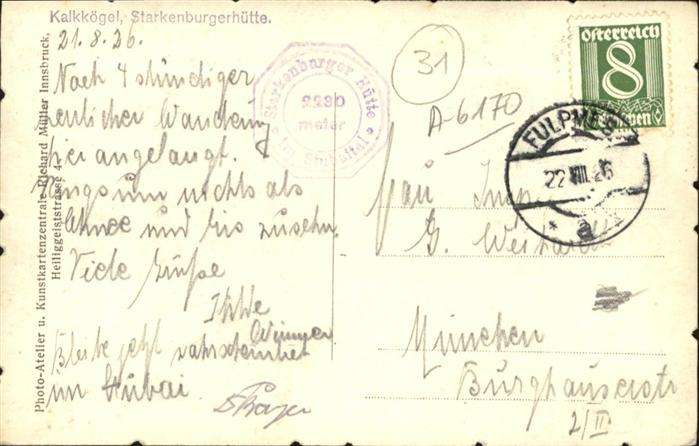 Kalkkögel, Starkenburgerhütte.
21.8.26.
Nach 4 stündiger
herrlicher Wanderung
hier angelangt.
Ringsum nichts als
Schnee und Eis zu sehn.
Viele Grüße
Bleibe jetzt wahrscheinlich
im Stubai.
Photo-Atelier u. Kunstkartenzentrale Richard Müller Innsbruck,
Heiliggeiststrasse 4.
Starkenburger Hütte
2230
meter
im Stubaital
31
A-6170
Österreich
8
Groschen
FULPMES
22.VIII.26
* a
Frau
G.
München
Burghauserstr
2/II